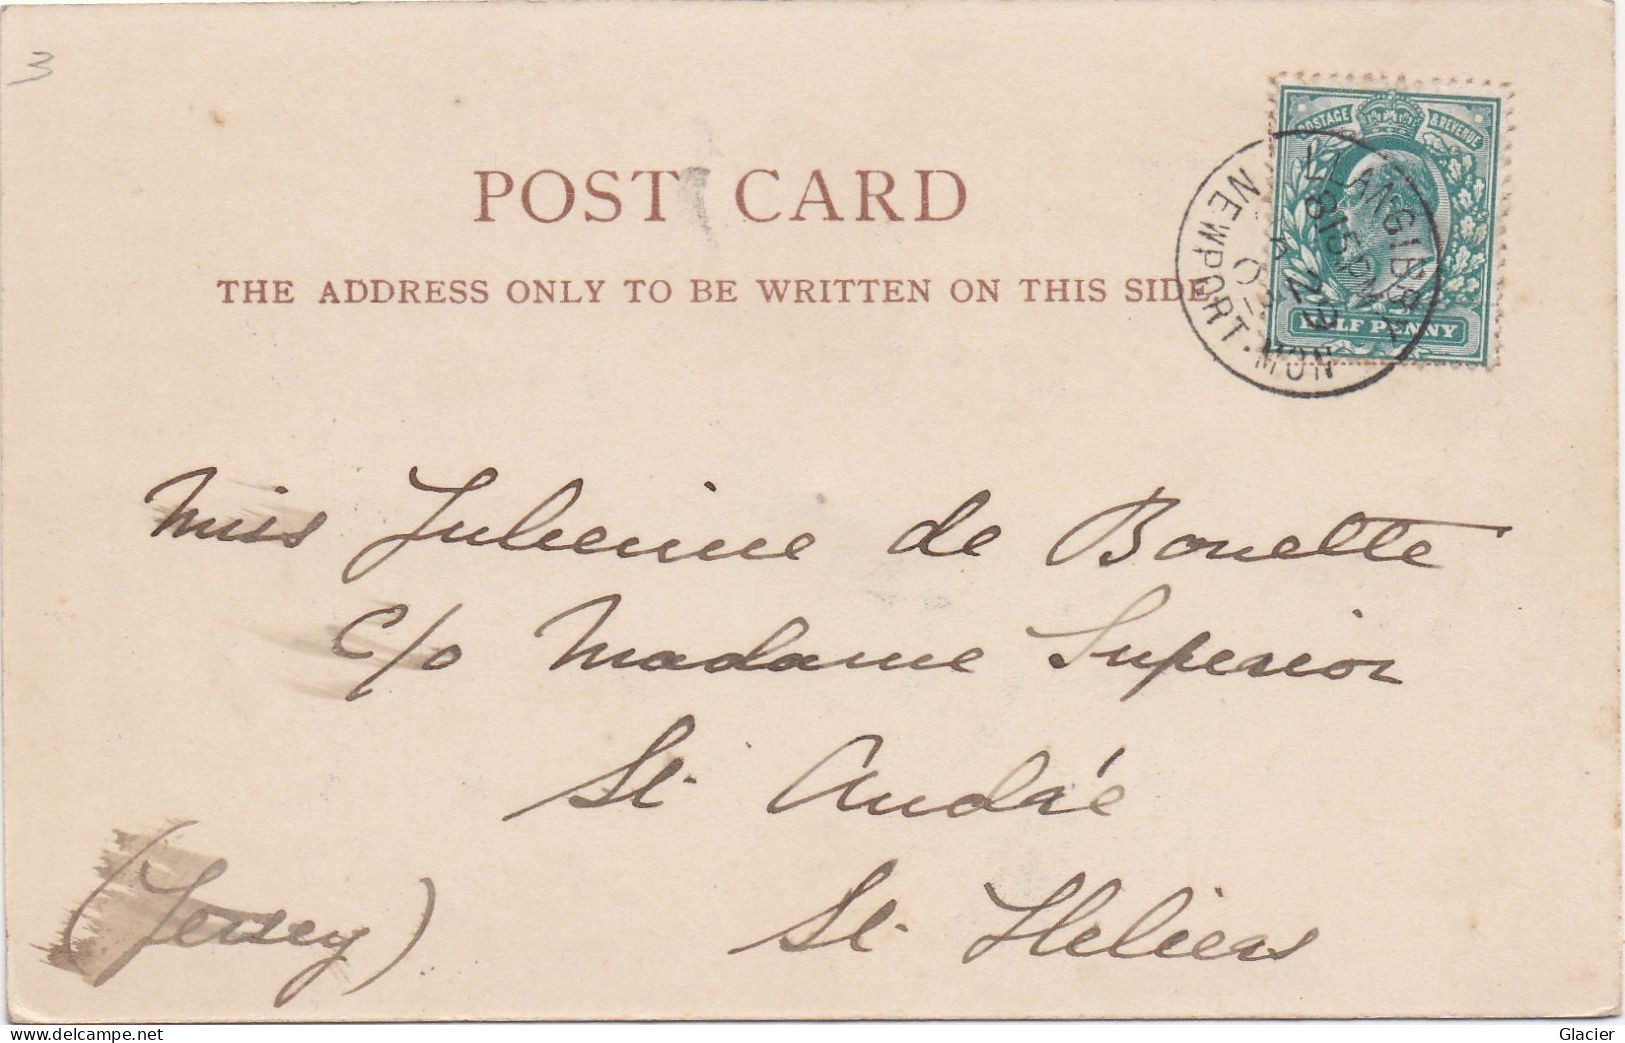 3
POSTAGE & REVENUE
POST CARD
LLANGIBBY
815PM
22
NEWPORT·MON
THE ADDRESS ONLY TO BE WRITTEN ON THIS SIDE
HALF PENNY
Miss Julienne de Bonette
c/o Madame Superior
St. André
St. Heliers
(Jersey)
delcampe.net
Glacier